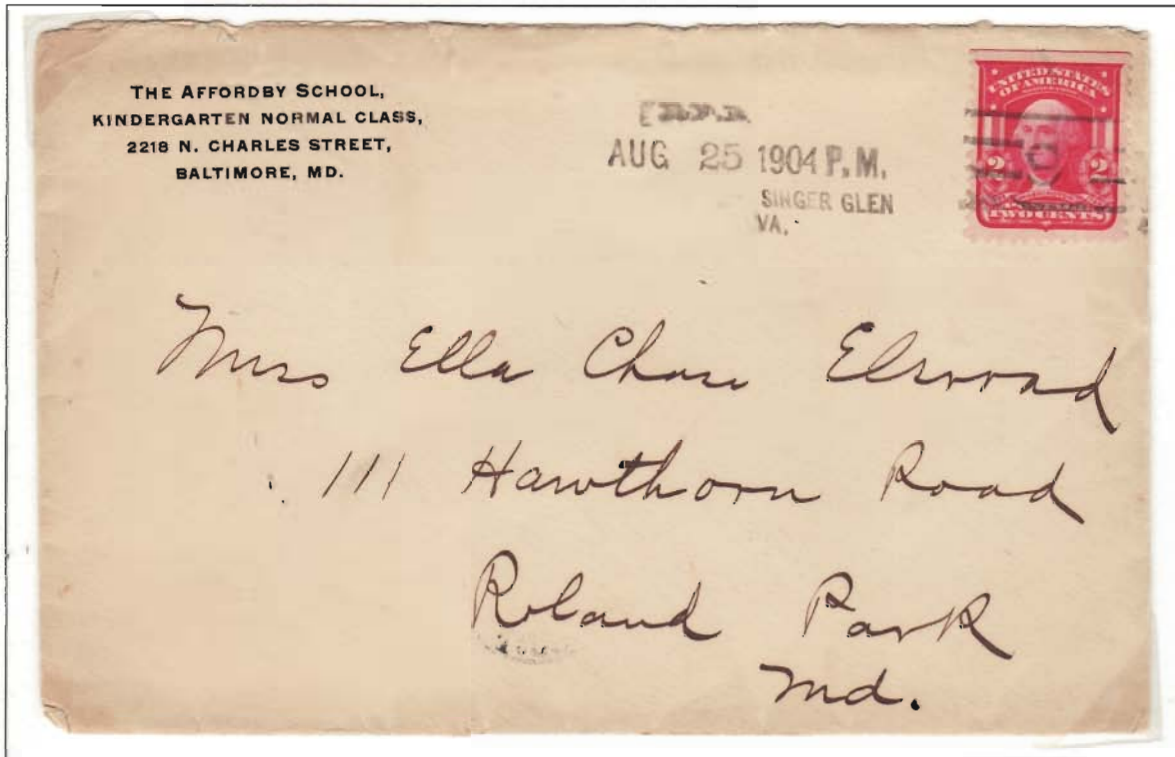 THE AFFORDBY SCHOOL,
KINDERGARTEN NORMAL CLASS,
2218 N. CHARLES STREET,
BALTIMORE, MD.
AUG 25 1904 P.M.
SINGER GLEN
VA.
UNITED STATES
OF AMERICA
2 2
TWO CENTS
Miss Ella Chase Elwood
111 Hawthorn Road
Roland Park
Md.